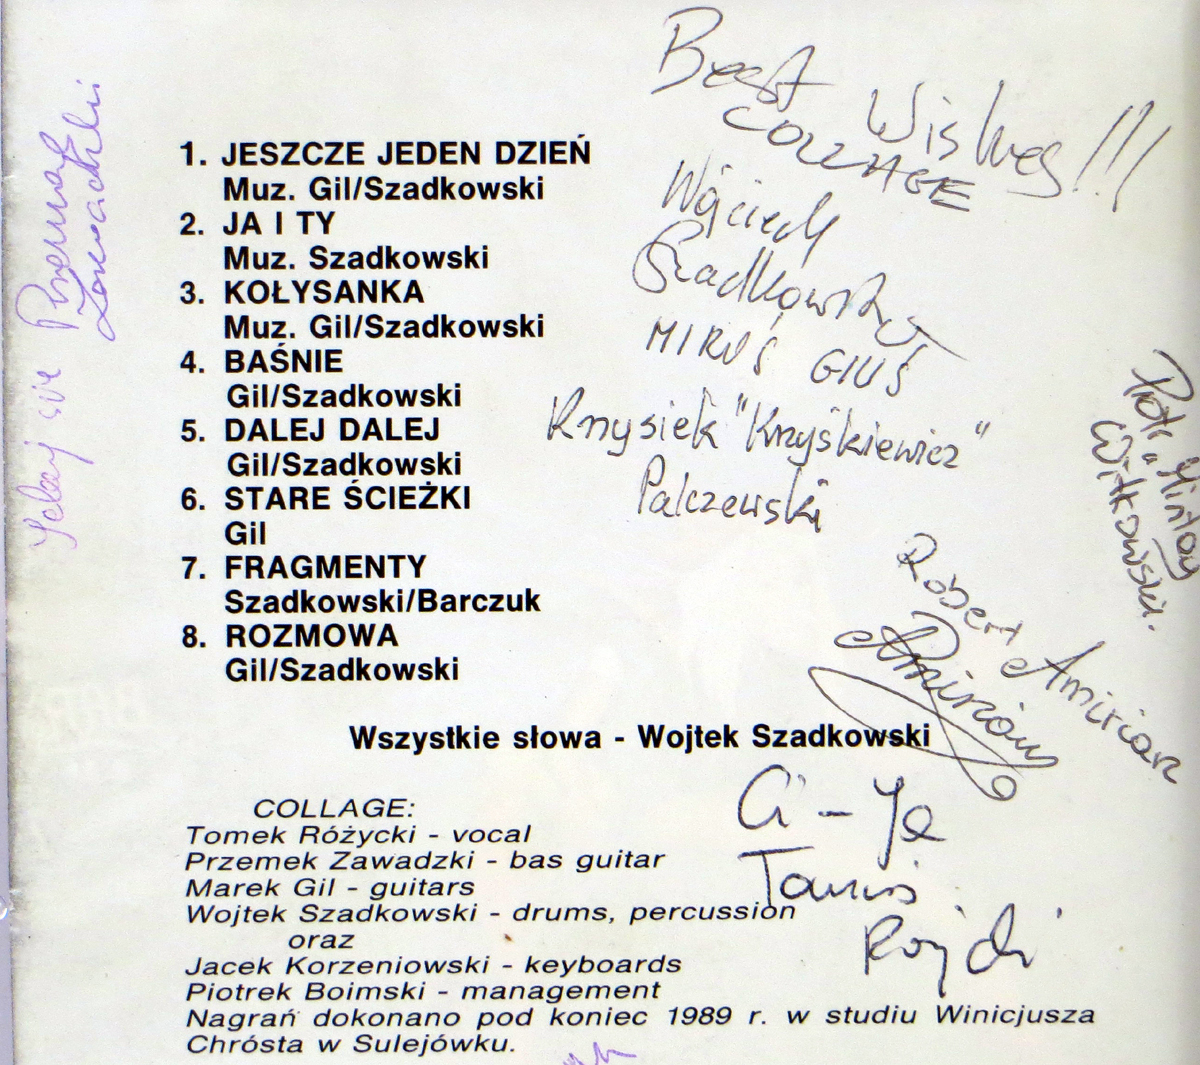 Best Wishes!!!
COLLAGE
1. JESZCZE JEDEN DZIEŃ
Muz. Gil/Szadkowski
2. JA I TY
Muz. Szadkowski
3. KOŁYSANKA
Muz. Gil/Szadkowski
4. BAŚNIE
Gil/Szadkowski
5. DALEJ DALEJ
Gil/Szadkowski
6. STARE ŚCIEŻKI
Gil
7. FRAGMENTY
Szadkowski/Barczuk
8. ROZMOWA
Gil/Szadkowski
Wojciech
Szadkowski
MIRUŚ GIUŚ
Krzysiek "Krzyśkiewicz"
Palczewski
Piotr Mintay
Witkowski.
Robert Amirian
Amirian
Wszystkie słowa - Wojtek Szadkowski
COLLAGE:
Tomek Różycki - vocal
Przemek Zawadzki - bas guitar
Marek Gil - guitars
Wojtek Szadkowski - drums, percussion
oraz
Jacek Korzeniowski - keyboards
Piotrek Boimski - management
Nagrań dokonano pod koniec 1989 r. w studiu Winicjusza
Chrósta w Sulejówku.
Przemek
Zawadzki